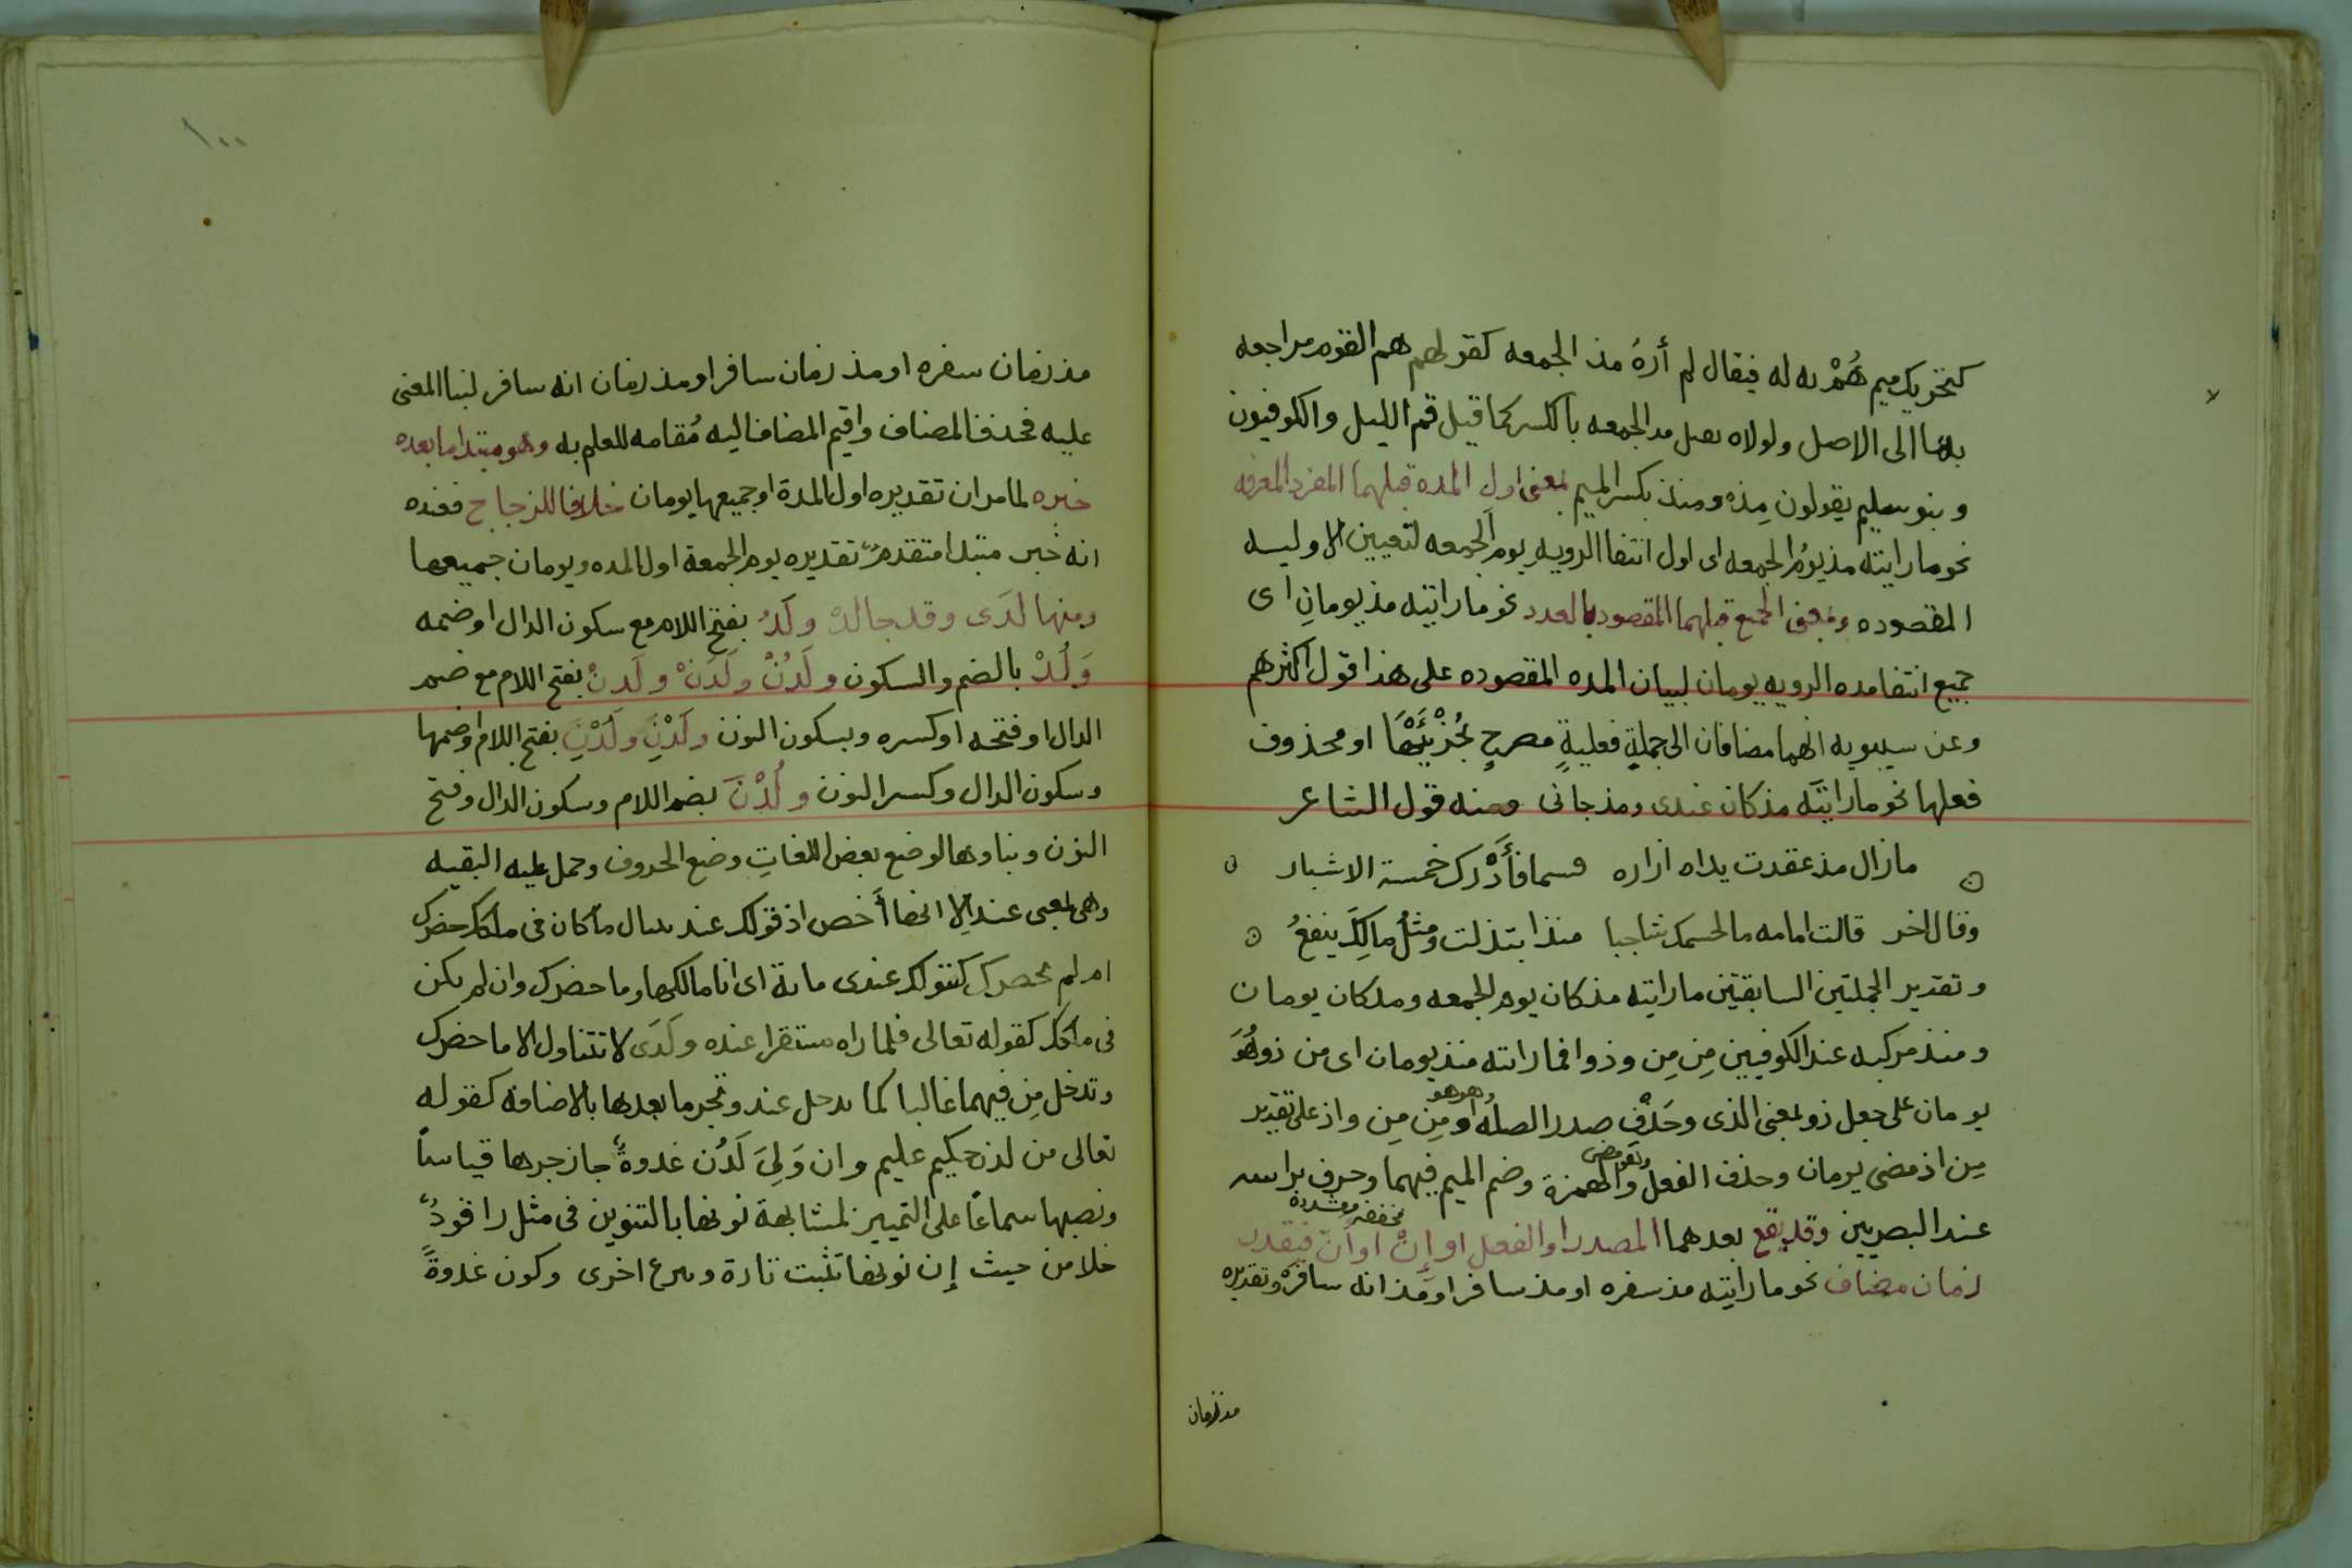 كتحريك ميم هُمْ به له فيقال لم أرهُ مذ الجمعه كقولهم هم القوم مراجعه
بها الى الاصل ولولاه مد الجمعه بالكسر كما قيل قم الليل والكوفيون
وبنو سليم يقولون مِذ ومنذ بكسر الميم بمعنى اول المده قبلهما المفرد المعرفه
نحو ما رايته مذ يومُ الجمعه اى اول انتفا الرويه يوم الجمعه لتعيين الاوليه
المقصوده وبمعنى الجميع قبلهما المقصود بالعدد نحو ما رايته مذ يومانِ اى
جميع انتفا مده الرويه يومان لبيان المده المقصوده على هذا قول اكثرهم
وعن سيبويه انهما مضافان الى جملةٍ فعليةٍ مصرحٍ بجُزْئَيْهَا او محذوف
فعلها نحو ما رايته مذ كان عندى ومذ جانى ومنه قول الشاعر
ما زال مذ عقدت يداه ازاره فسما فأَدْرك خمسة الاشبار
وقال اخر قالت امامه ما لجسمك شاحبا منذ ابتذلت ومثلُ مالِكَ ينفعُ
وتقدير الجملتين السابقتين ما رايته مذ كان يوم الجمعه ومذ كان يومان
ومنذ مركبه عند الكوفيين مِن مِن وذو فما رايته منذ يومان اى من ذو هُوَ
يومان على جعل ذو بمعنى الذى وحَذْفِ صدر الصله وهو هو او مِن مِن واذ على تقدير
مِن اذ مضى يومان وحذف الفعل وهو مضى والهمزة وضم الميم فيهما وحرف براسه
عند البصريين وقد يقع بعدهما المصدر او الفعل او إنْ او أنّ مخففه ومشددة فيقدر
زمان مضاف نحو ما رايته مذ سفره او مذ سافر او مذ انه سافر وتقديره
مذ زمان
١٠٠
مذ زمان سفره او مذ زمان سافر او مذ زمان انه سافر لنبا المعنى
عليه فحذف المضاف واقيم المضاف اليه مُقامه للعلم به وهو مبتدا ما بعده
خبره لما مر ان تقديره اول المدة او جميعها يومان خلافا للزجاج فعنده
انه خبر مبتدا متقدمٌ تقديره يوم الجمعة اول المده ويومان جميعها
ومنها لدَى وقد جا لدْ ولَدُ بفتح اللام مع سكون الدال او ضمه
وَلُدْ بالضم والسكون ولَدُنْ ولَدَنْ ولَدِنْ بفتح اللام مع ضم
الدال او فتحه او كسره وبسكون النون ولَدْنِ ولُدْنِ بفتح اللام او ضمها
وسكون الدال وكسر النون ولُدْنَ بضم اللام وسكون الدال وفتح
النون وبناوها لوضع بعض اللغاتِ وضع الحروف وحمل عليه البقيه
وهى بمعنى عند الا انها أخص اذ قولك عند ما كان فى ملكك حضرك
ام لم يحضرك كقولك عندى ماية اى انا مالكها وما حضرك وان لم يكن
فى ملكك كقوله تعالى فلما راه مستقرا عنده ولَدَى لا تتناول الا ما حضرك
وتدخل مِن فيهما غالبا كما تدخل عند وتجر ما بعدها بالاضافه كقوله
تعالى من لدن حكيم عليم وان وَلِيَ لَدُن غدوةٌ جاز جرها قياساً
ونصبها سماعًا على التمييز لمشابهة نونها بالتنوين فى مثل راقودٌ
خلا من حيث إن نونها تثبت تارة اخرى وكون غدوةً